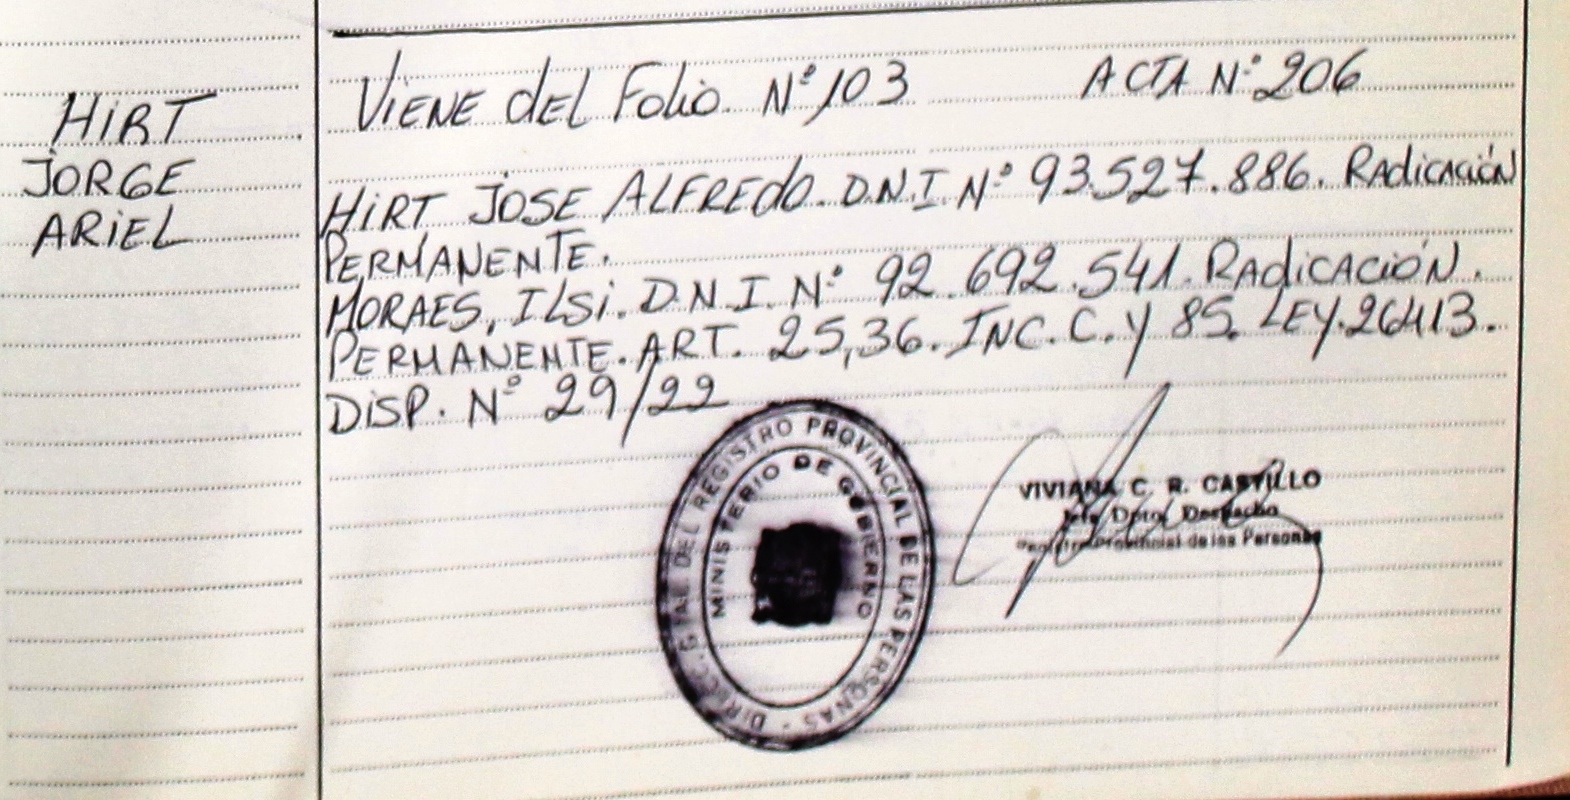 HIRT
JORGE
ARIEL
VIENE del Folio. Nº 103 ACTA Nº 206
HIRT JOSE ALFREDO. D.N.I Nº 93.527.886. RAdicación
PERMANENTE.
MORAES, ILSi. D.N.I. Nº 92.692.541. RAdicACIÓN.
PERMANENTE. ART. 25,36. INC. C. Y 85. LEY.26413.
DISP. Nº 29/22
DIRECC. GRAL DEL REGISTRO PROVINCIAL DE LAS PERSONAS -
MINISTERIO DE GOBIERNO
VIVIANA C. R. CASTILLO
Jefe Dpto. Despacho
Registro Provincial de las Personas